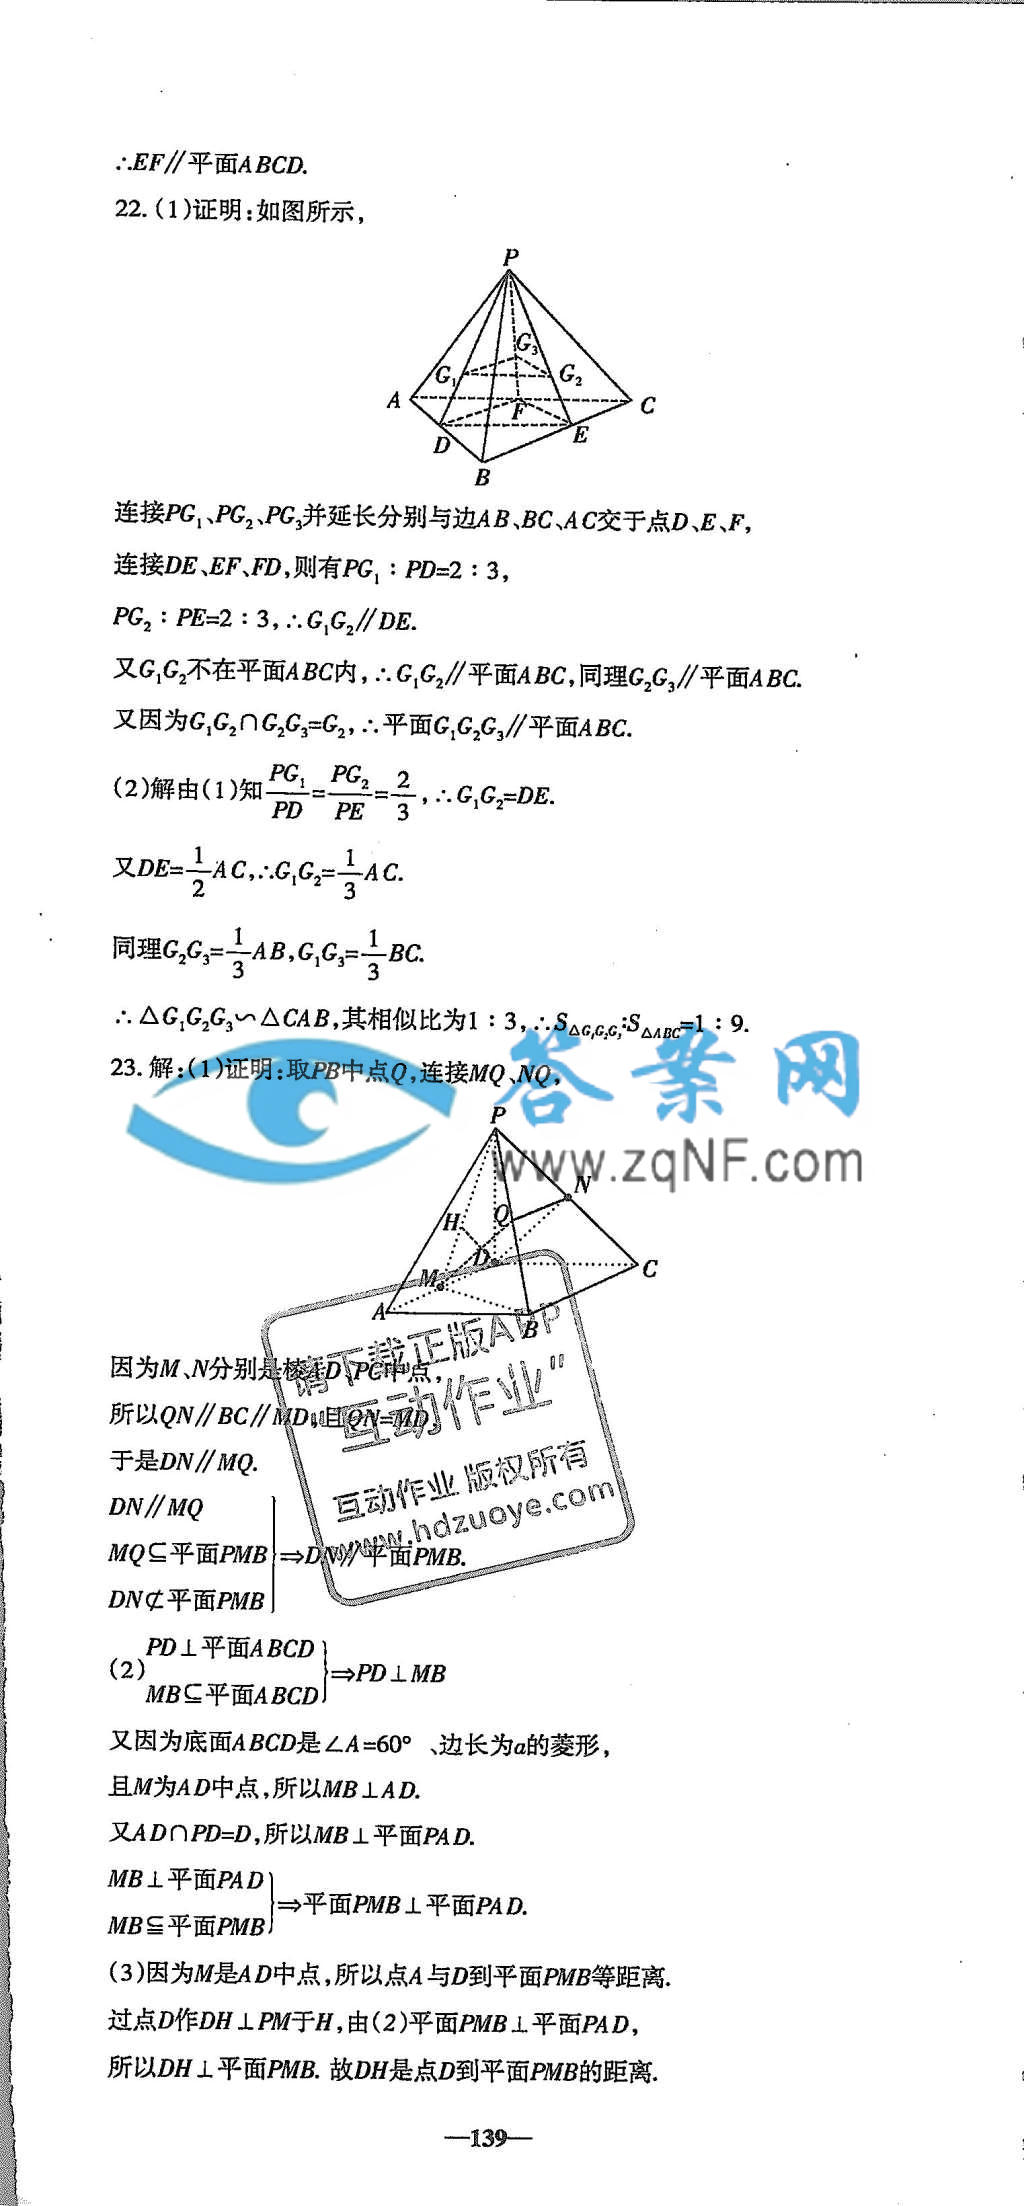 ∴EF∥平面ABCD.
22.(1)证明:如图所示,
P
G₃
G₁
G₂
A
F
C
D
E
B
连接PG₁、PG₂、PG₃并延长分别与边AB、BC、AC交于点D、E、F,
连接DE、EF、FD,则有PG₁∶PD=2∶3,
PG₂∶PE=2∶3,∴G₁G₂∥DE.
又G₁G₂不在平面ABC内,∴G₁G₂∥平面ABC,同理G₂G₃∥平面ABC.
又因为G₁G₂∩G₂G₃=G₂,∴平面G₁G₂G₃∥平面ABC.
(2)解由(1)知PG₁/PD=PG₂/PE=2/3,∴G₁G₂=DE.
又DE=1/2AC,∴G₁G₂=1/3AC.
同理G₂G₃=1/3AB,G₁G₃=1/3BC.
∴△G₁G₂G₃∽△CAB,其相似比为1∶3,∴S△G₁G₂G₃∶S△ABC=1∶9.
23.解:(1)证明:取PB中点Q,连接MQ、NQ,
答案网
www.zqNF.com
P
N
H
Q
D
C
M
A
B
因为M、N分别是棱AD、PC中点,
所以QN∥BC∥MD,且QN=MD,
于是DN∥MQ.
DN∥MQ
MQ⊆平面PMB}⇒DN∥平面PMB.
DN⊄平面PMB
请下载正版APP
"互动作业"
互动作业 版权所有
www.hdzuoye.com
(2)PD⊥平面ABCD
MB⊆平面ABCD}⇒PD⊥MB
又因为底面ABCD是∠A=60°、边长为a的菱形,
且M为AD中点,所以MB⊥AD.
又AD∩PD=D,所以MB⊥平面PAD.
MB⊥平面PAD
MB⊆平面PMB}⇒平面PMB⊥平面PAD.
(3)因为M是AD中点,所以点A与D到平面PMB等距离.
过点D作DH⊥PM于H,由(2)平面PMB⊥平面PAD,
所以DH⊥平面PMB.故DH是点D到平面PMB的距离.
—139—